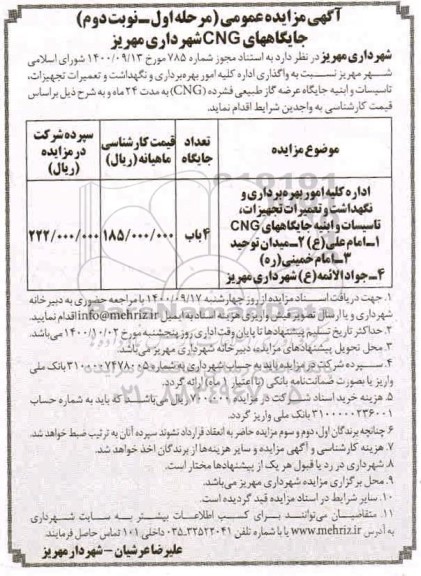 آگهی مزایده عمومی (مرحله اول_نوبت دوم)
جایگاههای CNG شهرداری مهریز
شهرداری مهریز در نظر دارد به استناد مجوز شماره ۷۸۵ مورخ ۱۴۰۰/۰۹/۱۳ شورای اسلامی
شهر مهریز نسبت به واگذاری اداره کلیه امور بهره‌برداری و نگهداشت و تعمیرات تجهیزات،
تاسیسات و ابنیه جایگاه عرضه گاز طبیعی فشرده (CNG) به مدت ۲۴ ماه و به شرح ذیل براساس
قیمت کارشناسی به واجدین شرایط اقدام نماید.
موضوع مزایده
تعداد جایگاه
قیمت کارشناسی ماهیانه (ریال)
سپرده شرکت در مزایده (ریال)
اداره کلیه امور بهره‌برداری و
نگهداشت و تعمیرات تجهیزات،
تاسیسات و ابنیه جایگاههای CNG
۱_امام علی (ع) ۲_میدان توحید
۳_امام خمینی (ره)
۴_جوادالائمه (ع) شهرداری مهریز
۴ باب
۱۸۵/۰۰۰/۰۰۰
۲۲۲/۰۰۰/۰۰۰
۱. جهت دریافت اسناد مزایده از روز چهارشنبه ۱۴۰۰/۰۹/۱۷ با مراجعه حضوری به دبیرخانه
شهرداری و یا ارسال تصویر فیش واریزی هزینه اسناد به ایمیل info@mehriz.ir اقدام نمایید.
۲. حداکثر تاریخ تسلیم پیشنهادها تا پایان وقت اداری روز پنجشنبه مورخ ۱۴۰۰/۱۰/۰۲ می‌باشد.
۳. محل تحویل پیشنهادهای مزایده، دبیرخانه شهرداری مهریز می‌باشد.
۴. سپرده شرکت در مزایده باید به حساب شهرداری به شماره ۳۱۰۰۰۰۷۴۷۸۰۰۵ بانک ملی
واریز یا بصورت ضمانت‌نامه بانکی (با اعتبار ۱ ماه) ارائه گردد.
۵. هزینه خرید اسناد شرکت در مزایده ۷۰۰/۰۰۰ ریال می‌باشد که باید به شماره حساب
۳۱۰۰۰۰۰۲۳۶۰۰۱ بانک ملی واریز گردد.
۶. چنانچه برندگان اول، دوم و سوم مزایده حاضر به انعقاد قرارداد نشوند سپرده آنان به ترتیب ضبط خواهد شد.
۷. هزینه کارشناسی و آگهی مزایده و سایر هزینه‌ها از برندگان اخذ خواهد شد.
۸. شهرداری در رد یا قبول هر یک از پیشنهادها مختار است.
۹. محل برگزاری مزایده شهرداری مهریز می‌باشد.
۱۰. سایر شرایط در اسناد مزایده قید گردیده است.
۱۱. متقاضیان می‌توانند برای کسب اطلاعات بیشتر به سایت شهرداری
به آدرس www.mehriz.ir یا با شماره تلفن ۰۳۵_۳۲۵۲۲۰۴۱ داخلی ۱۰۱ تماس حاصل فرمایند.
علیرضا عرشیان - شهردار مهریز